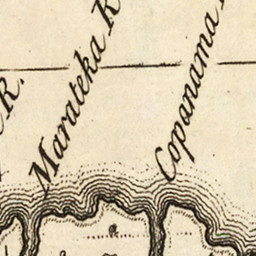 R.
Marateka R
Copanama